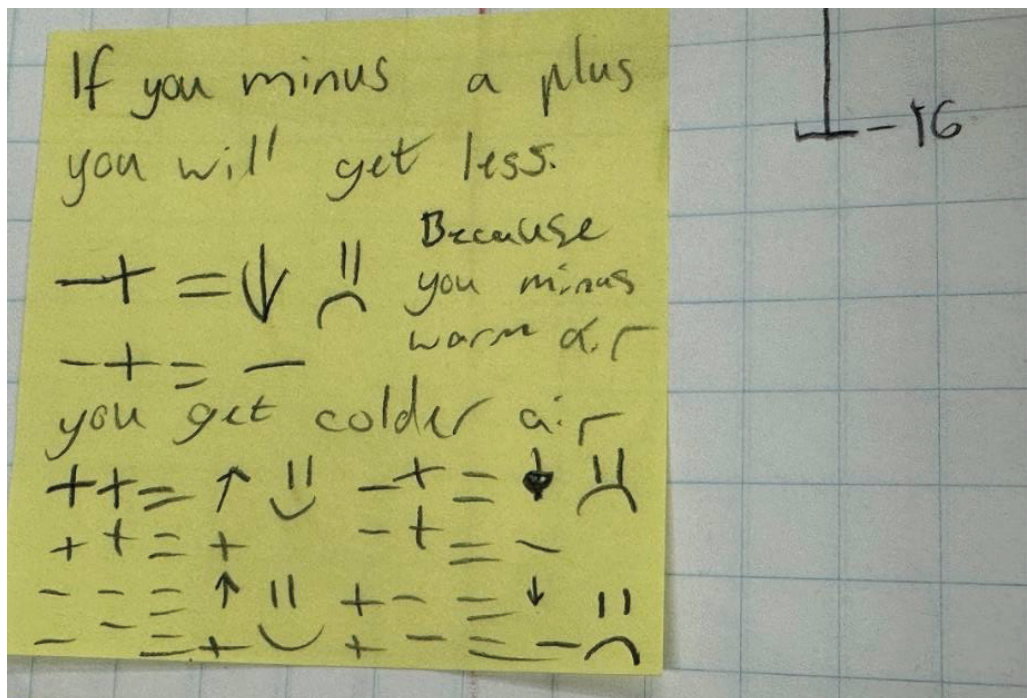 If you minus a plus
you will get less.
- + = ↓ :(
Because
you minus
warm air
- + = -
you get colder air
+ + = ↑ :) - + = ↓ :(
+ + = + - + = -
- - = ↑ :) + - = ↓ :(
- - = + + - = -
-16